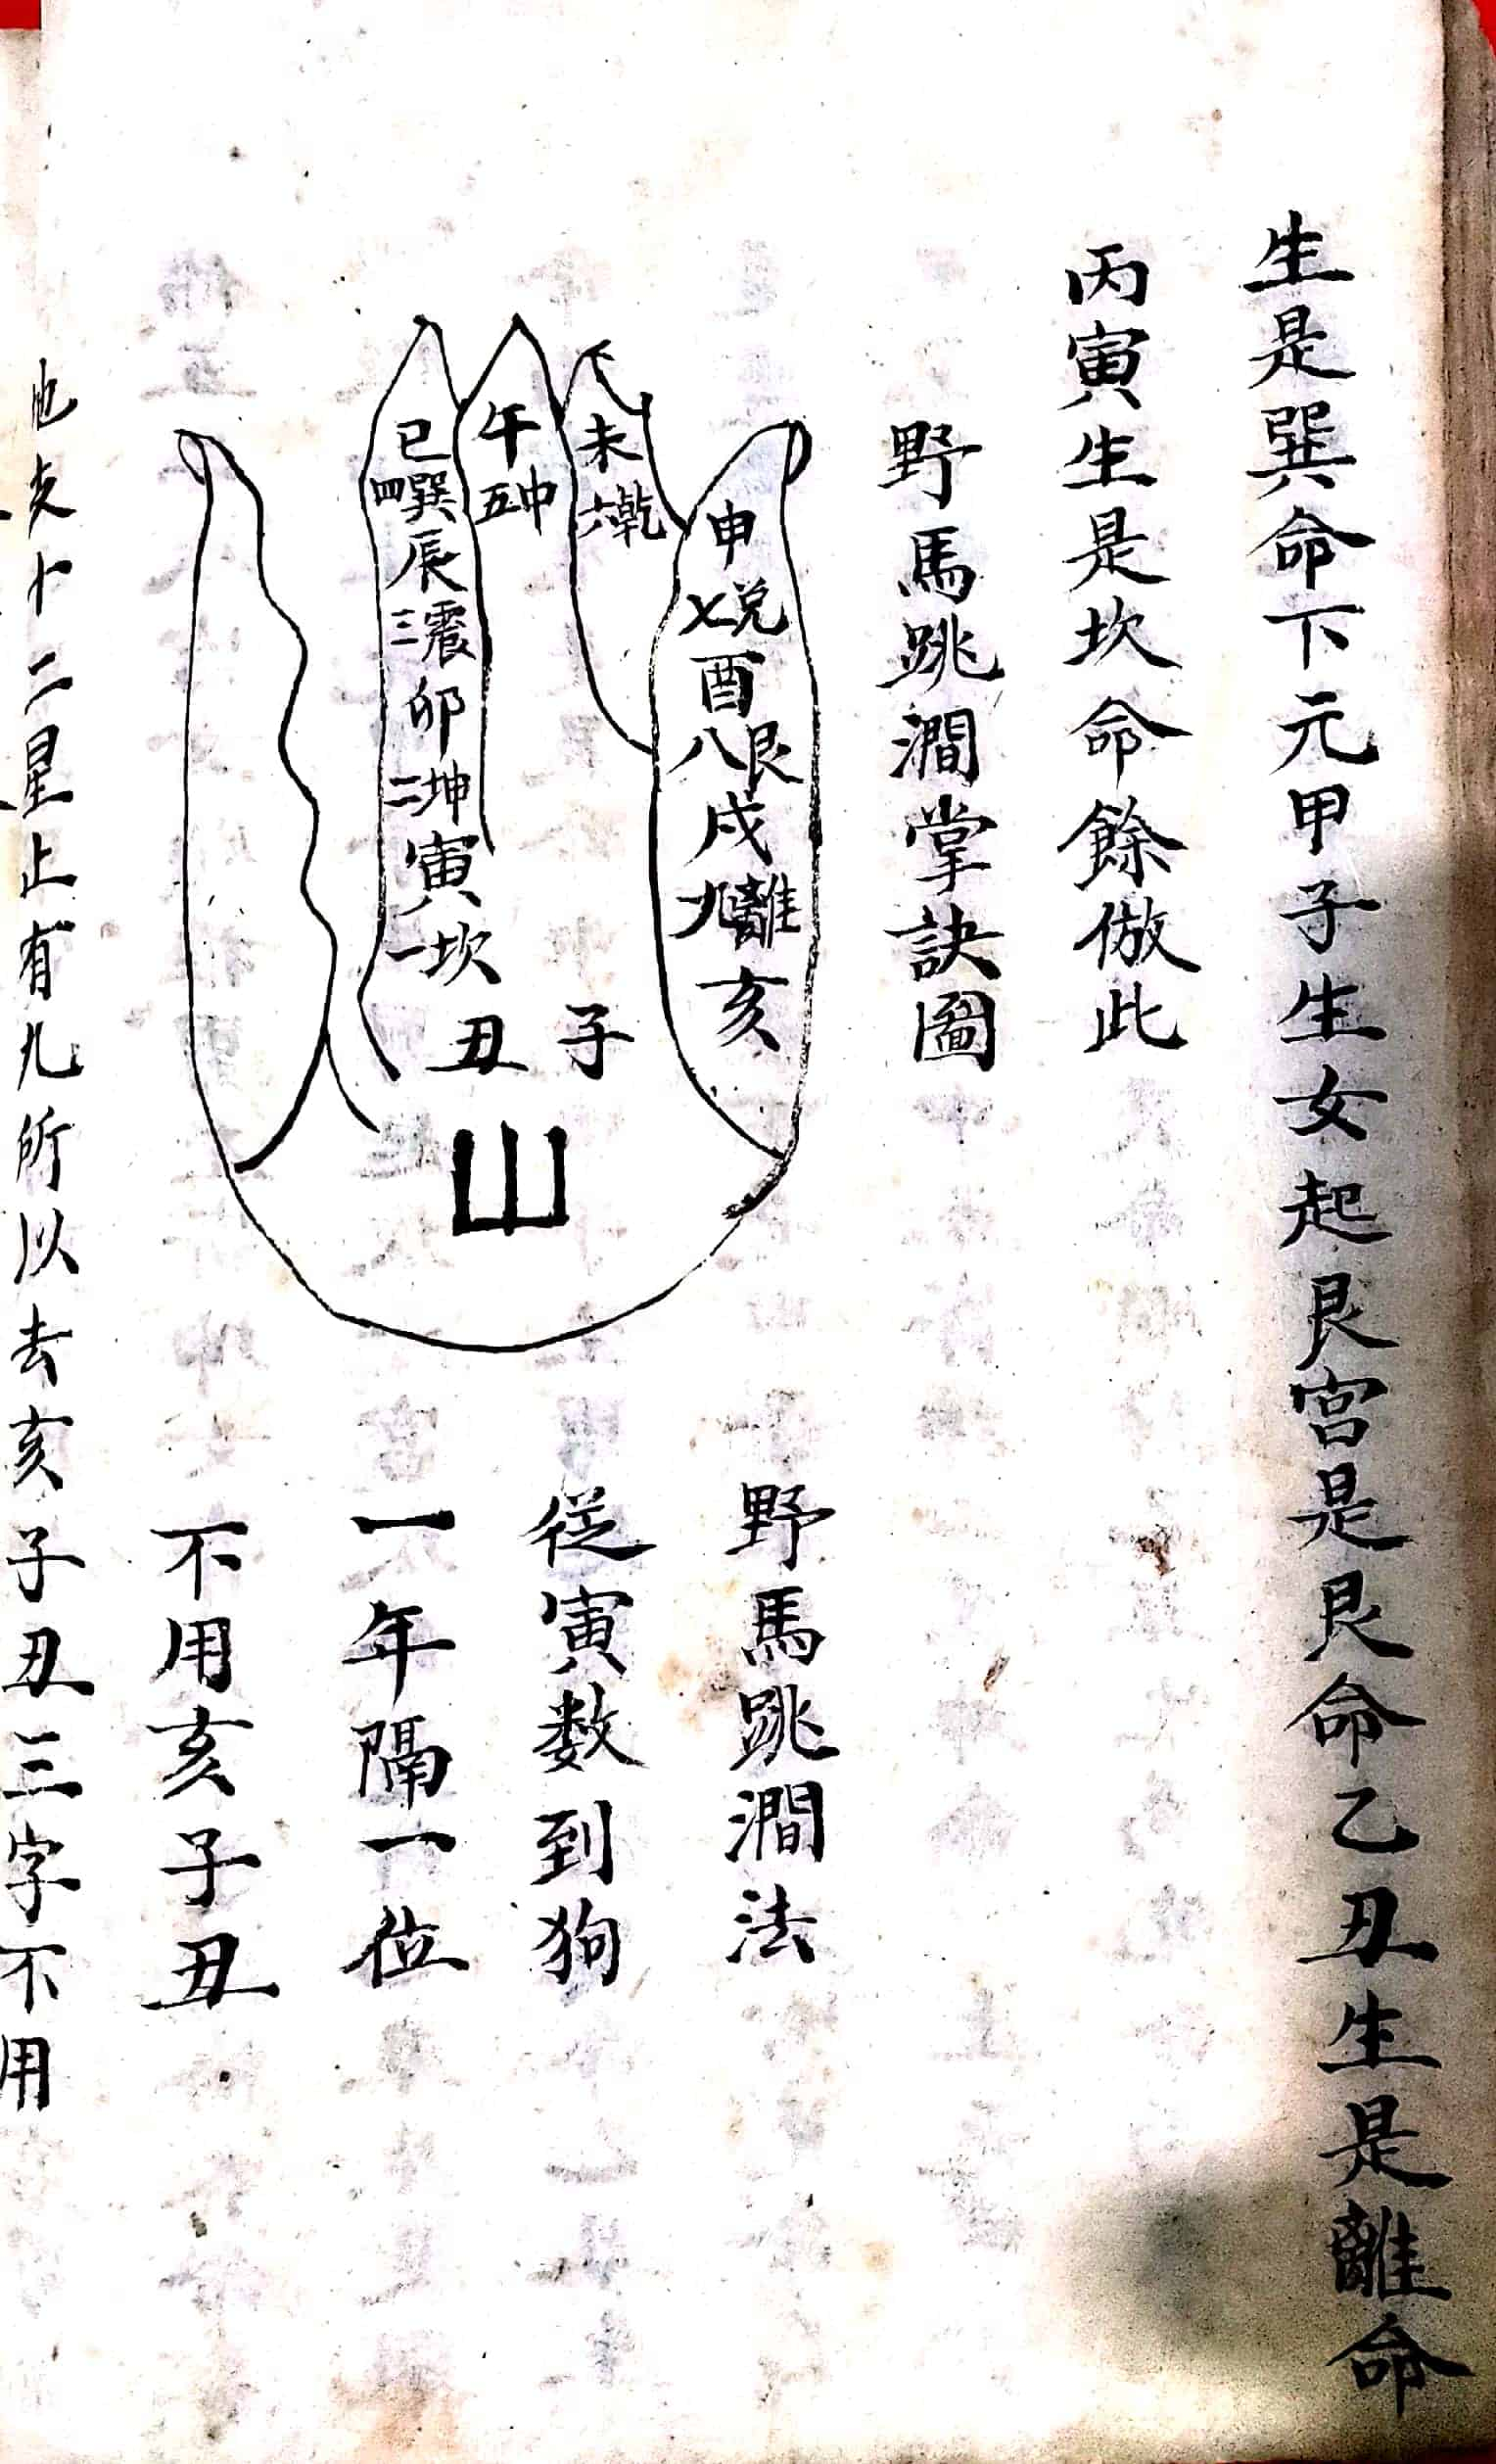 生是巽命下元甲子生女起艮宮是艮命乙丑生是離命
丙寅生是坎命餘倣此
野馬跳澗掌訣圖
申
七兌
酉
八艮
戌
九離
亥
未
六乾
午
五中
巳
四巽
辰
三震
卯
二坤
寅
一坎
丑
子
山
野馬跳澗法
從寅数到狗
一年隔一位
不用亥子丑
二星止有九所以去亥子丑三字不用